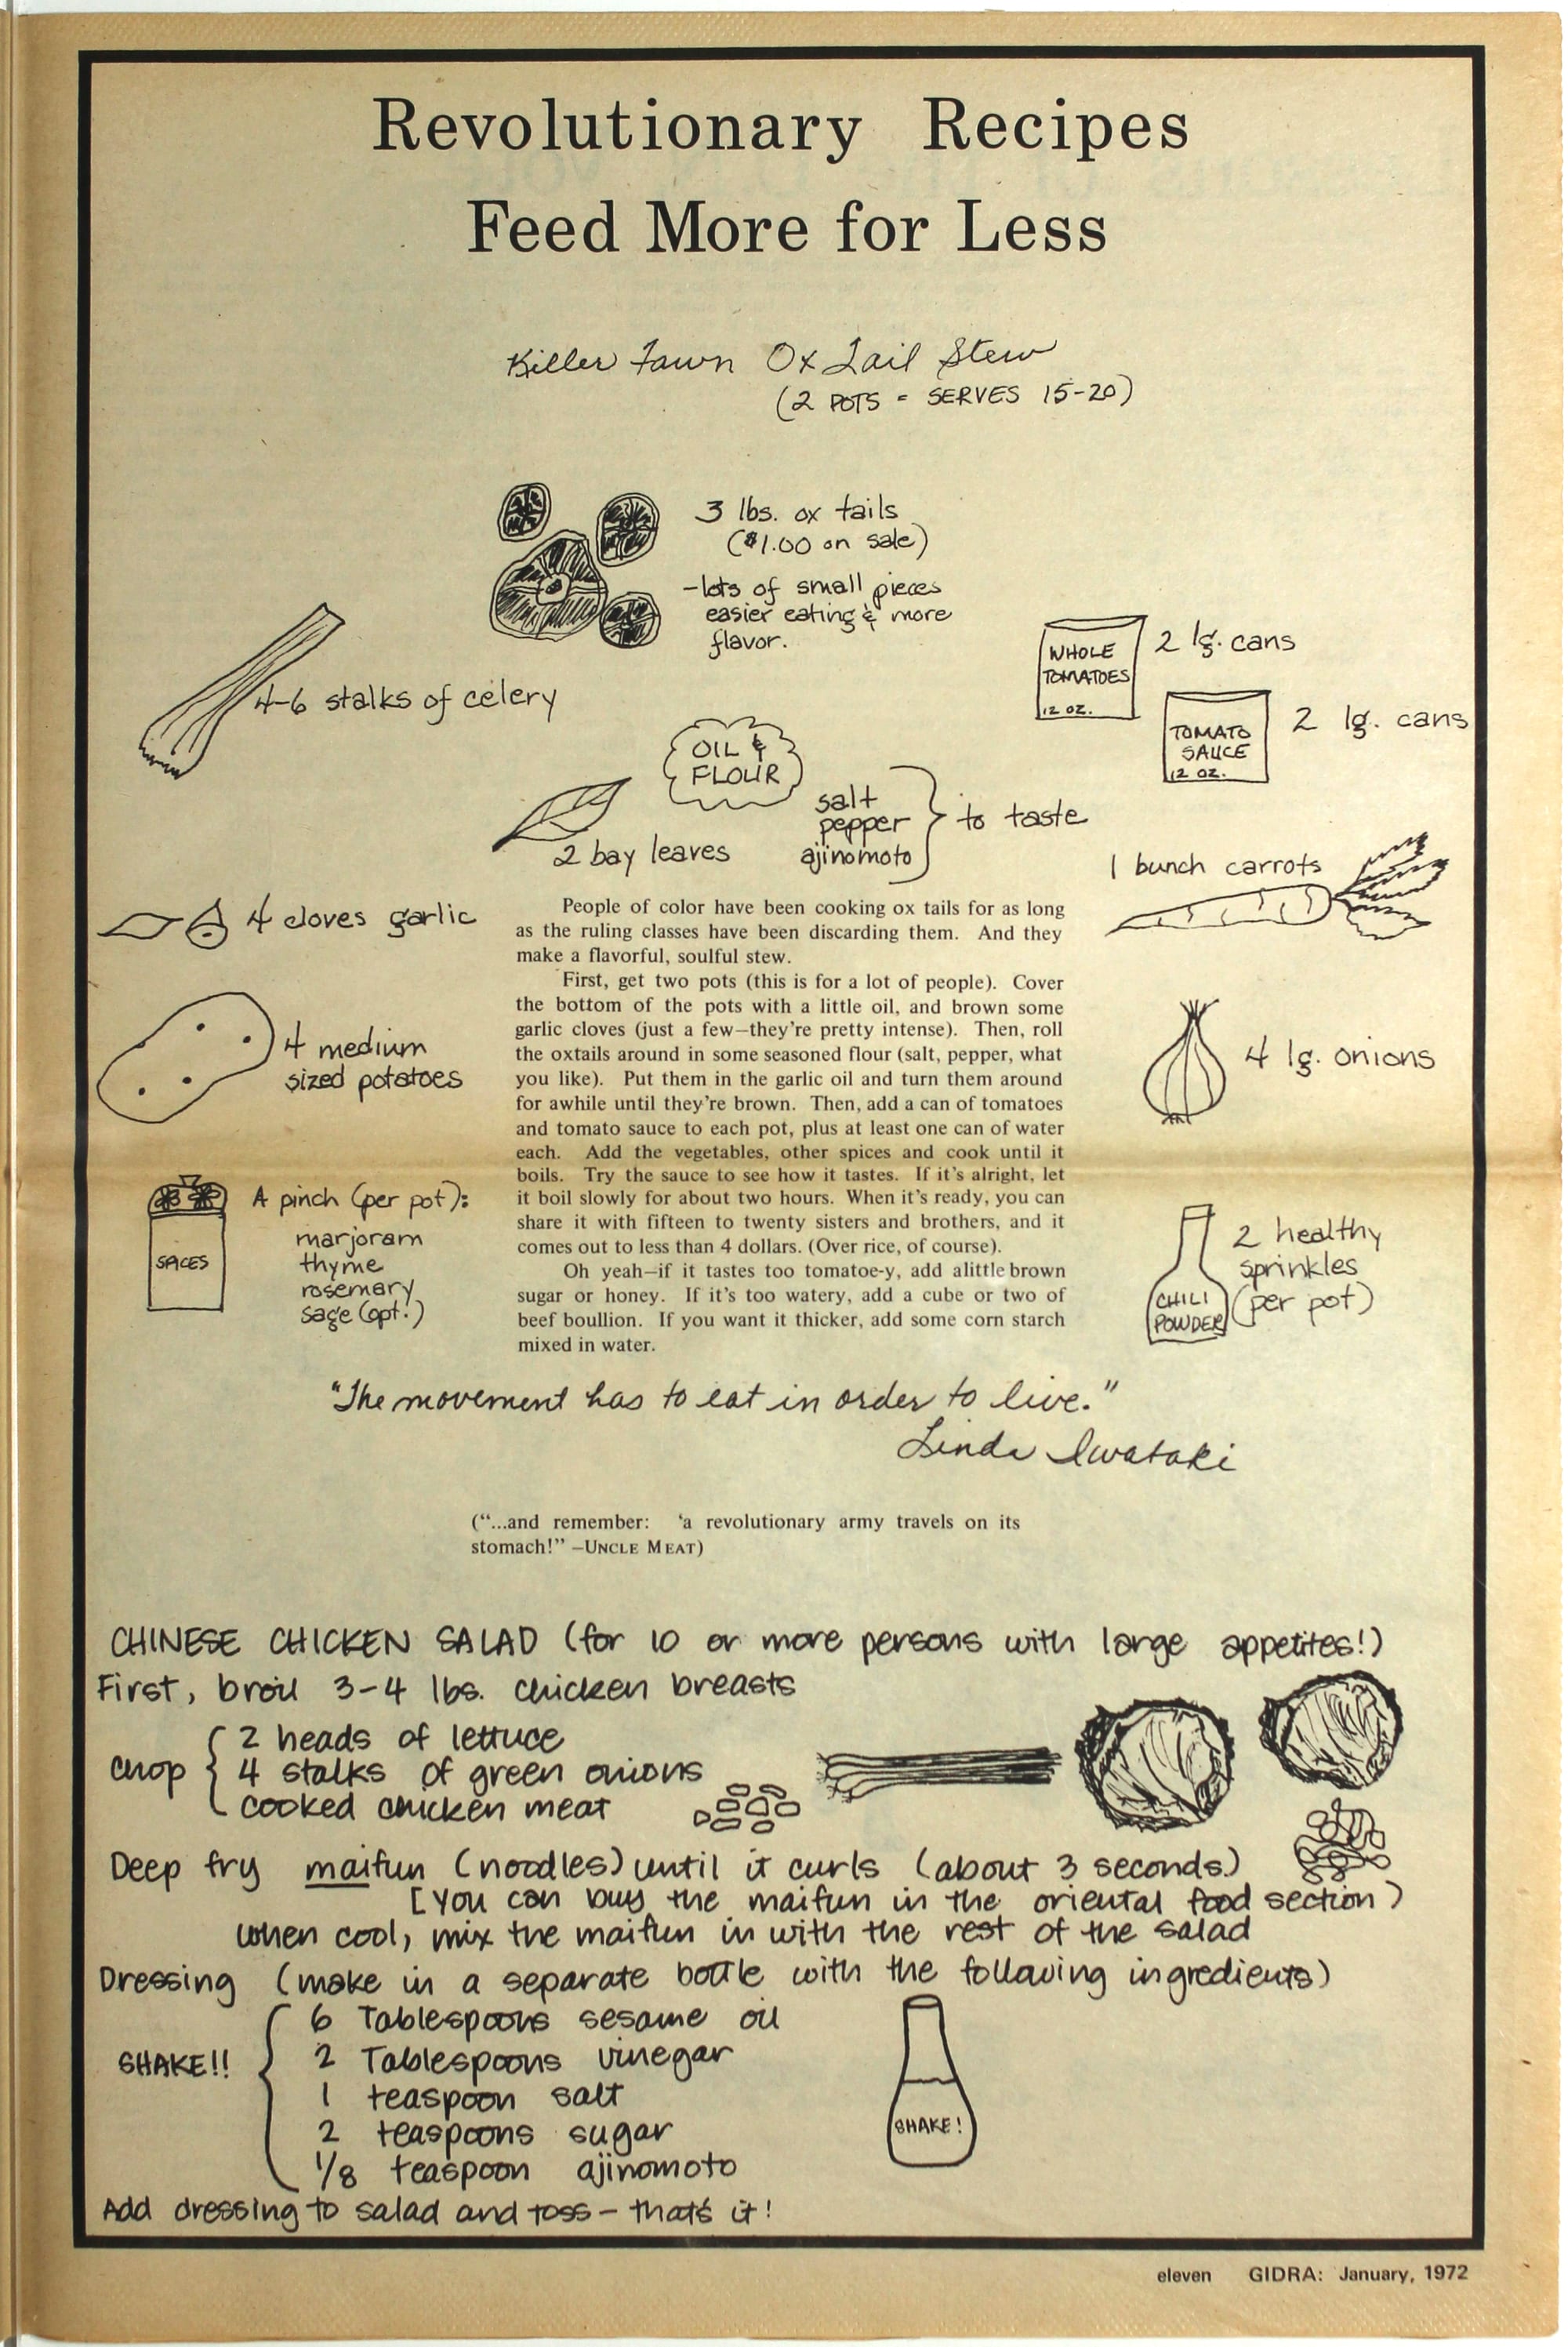 Revolutionary Recipes
Feed More for Less
Killer Fawn Ox Tail Stew
(2 POTS = SERVES 15-20)
3 lbs. ox tails
($1.00 on sale)
-lots of small pieces
easier eating & more
flavor.
4-6 stalks of celery
WHOLE
TOMATOES
12 OZ.
2 lg. cans
TOMATO
SAUCE
12 OZ.
2 lg. cans
OIL &
FLOUR
2 bay leaves
salt
pepper
ajinomoto
to taste
1 bunch carrots
4 cloves garlic
4 medium
sized potatoes
4 lg. onions
SPICES
A pinch (per pot):
marjoram
thyme
rosemary
sage (opt.)
CHILI
POWDER
2 healthy
sprinkles
(per pot)
People of color have been cooking ox tails for as long
as the ruling classes have been discarding them. And they
make a flavorful, soulful stew.
First, get two pots (this is for a lot of people). Cover
the bottom of the pots with a little oil, and brown some
garlic cloves (just a few—they're pretty intense). Then, roll
the oxtails around in some seasoned flour (salt, pepper, what
you like). Put them in the garlic oil and turn them around
for awhile until they're brown. Then, add a can of tomatoes
and tomato sauce to each pot, plus at least one can of water
each. Add the vegetables, other spices and cook until it
boils. Try the sauce to see how it tastes. If it's alright, let
it boil slowly for about two hours. When it's ready, you can
share it with fifteen to twenty sisters and brothers, and it
comes out to less than 4 dollars. (Over rice, of course).
Oh yeah—if it tastes too tomatoe-y, add alittle brown
sugar or honey. If it's too watery, add a cube or two of
beef boullion. If you want it thicker, add some corn starch
mixed in water.
"The movement has to eat in order to live."
Linda Iwataki
("...and remember: 'a revolutionary army travels on its
stomach!" —UNCLE MEAT)
CHINESE CHICKEN SALAD (for 10 or more persons with large appetites!)
First, broil 3-4 lbs. chicken breasts
chop
2 heads of lettuce
4 stalks of green onions
cooked chicken meat
Deep fry maifun (noodles) until it curls (about 3 seconds.)
[you can buy the maifun in the oriental food section)
when cool, mix the maifun in with the rest of the salad
Dressing (make in a separate bottle with the following ingredients)
SHAKE!!
6 Tablespoons sesame oil
2 Tablespoons vinegar
1 teaspoon salt
2 teaspoons sugar
1/8 teaspoon ajinomoto
SHAKE!
Add dressing to salad and toss - that's it!
eleven GIDRA: January, 1972